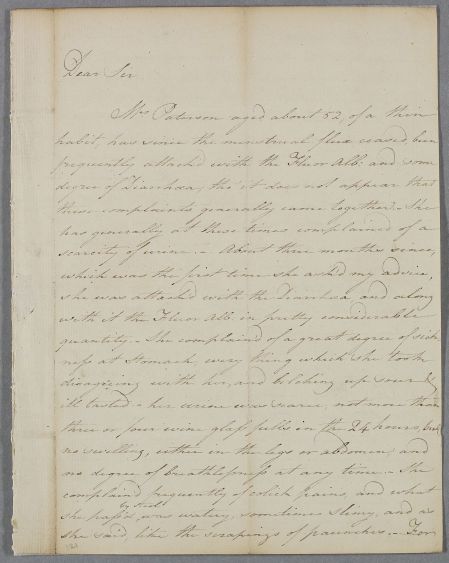 Dear Sir
Mrs Paterson aged about 52, of a thin
habit, has since the menstrual flux ceased, been
frequently attacked with the Fluor Alb: and some
degree of Diarrhœa, tho' it does not appear that
these complaints generally came together. She
has generally at these times complained of a
scarcity of urine. - About three months since,
which was the first time she asked my advice,
she was attacked with the Diarrhœa, and along
with it the Fluor Alb. in pretty considerable
quantity. - She complained of a great degree of sick-
ness at Stomach every thing which she took
disagreeing with her, and belching up sour &
ill tasted - her urine was scarce, not more than
three or four wine glass fulls in the 24 hours, but
no swelling, either in the legs or abdomen, and
no degree of breathlessness at any time. - She
complained frequently of colick pains, and what
by stool
she pass'd, was watery, sometimes slimy, and as
she said, like the scrapings of paunches. - For